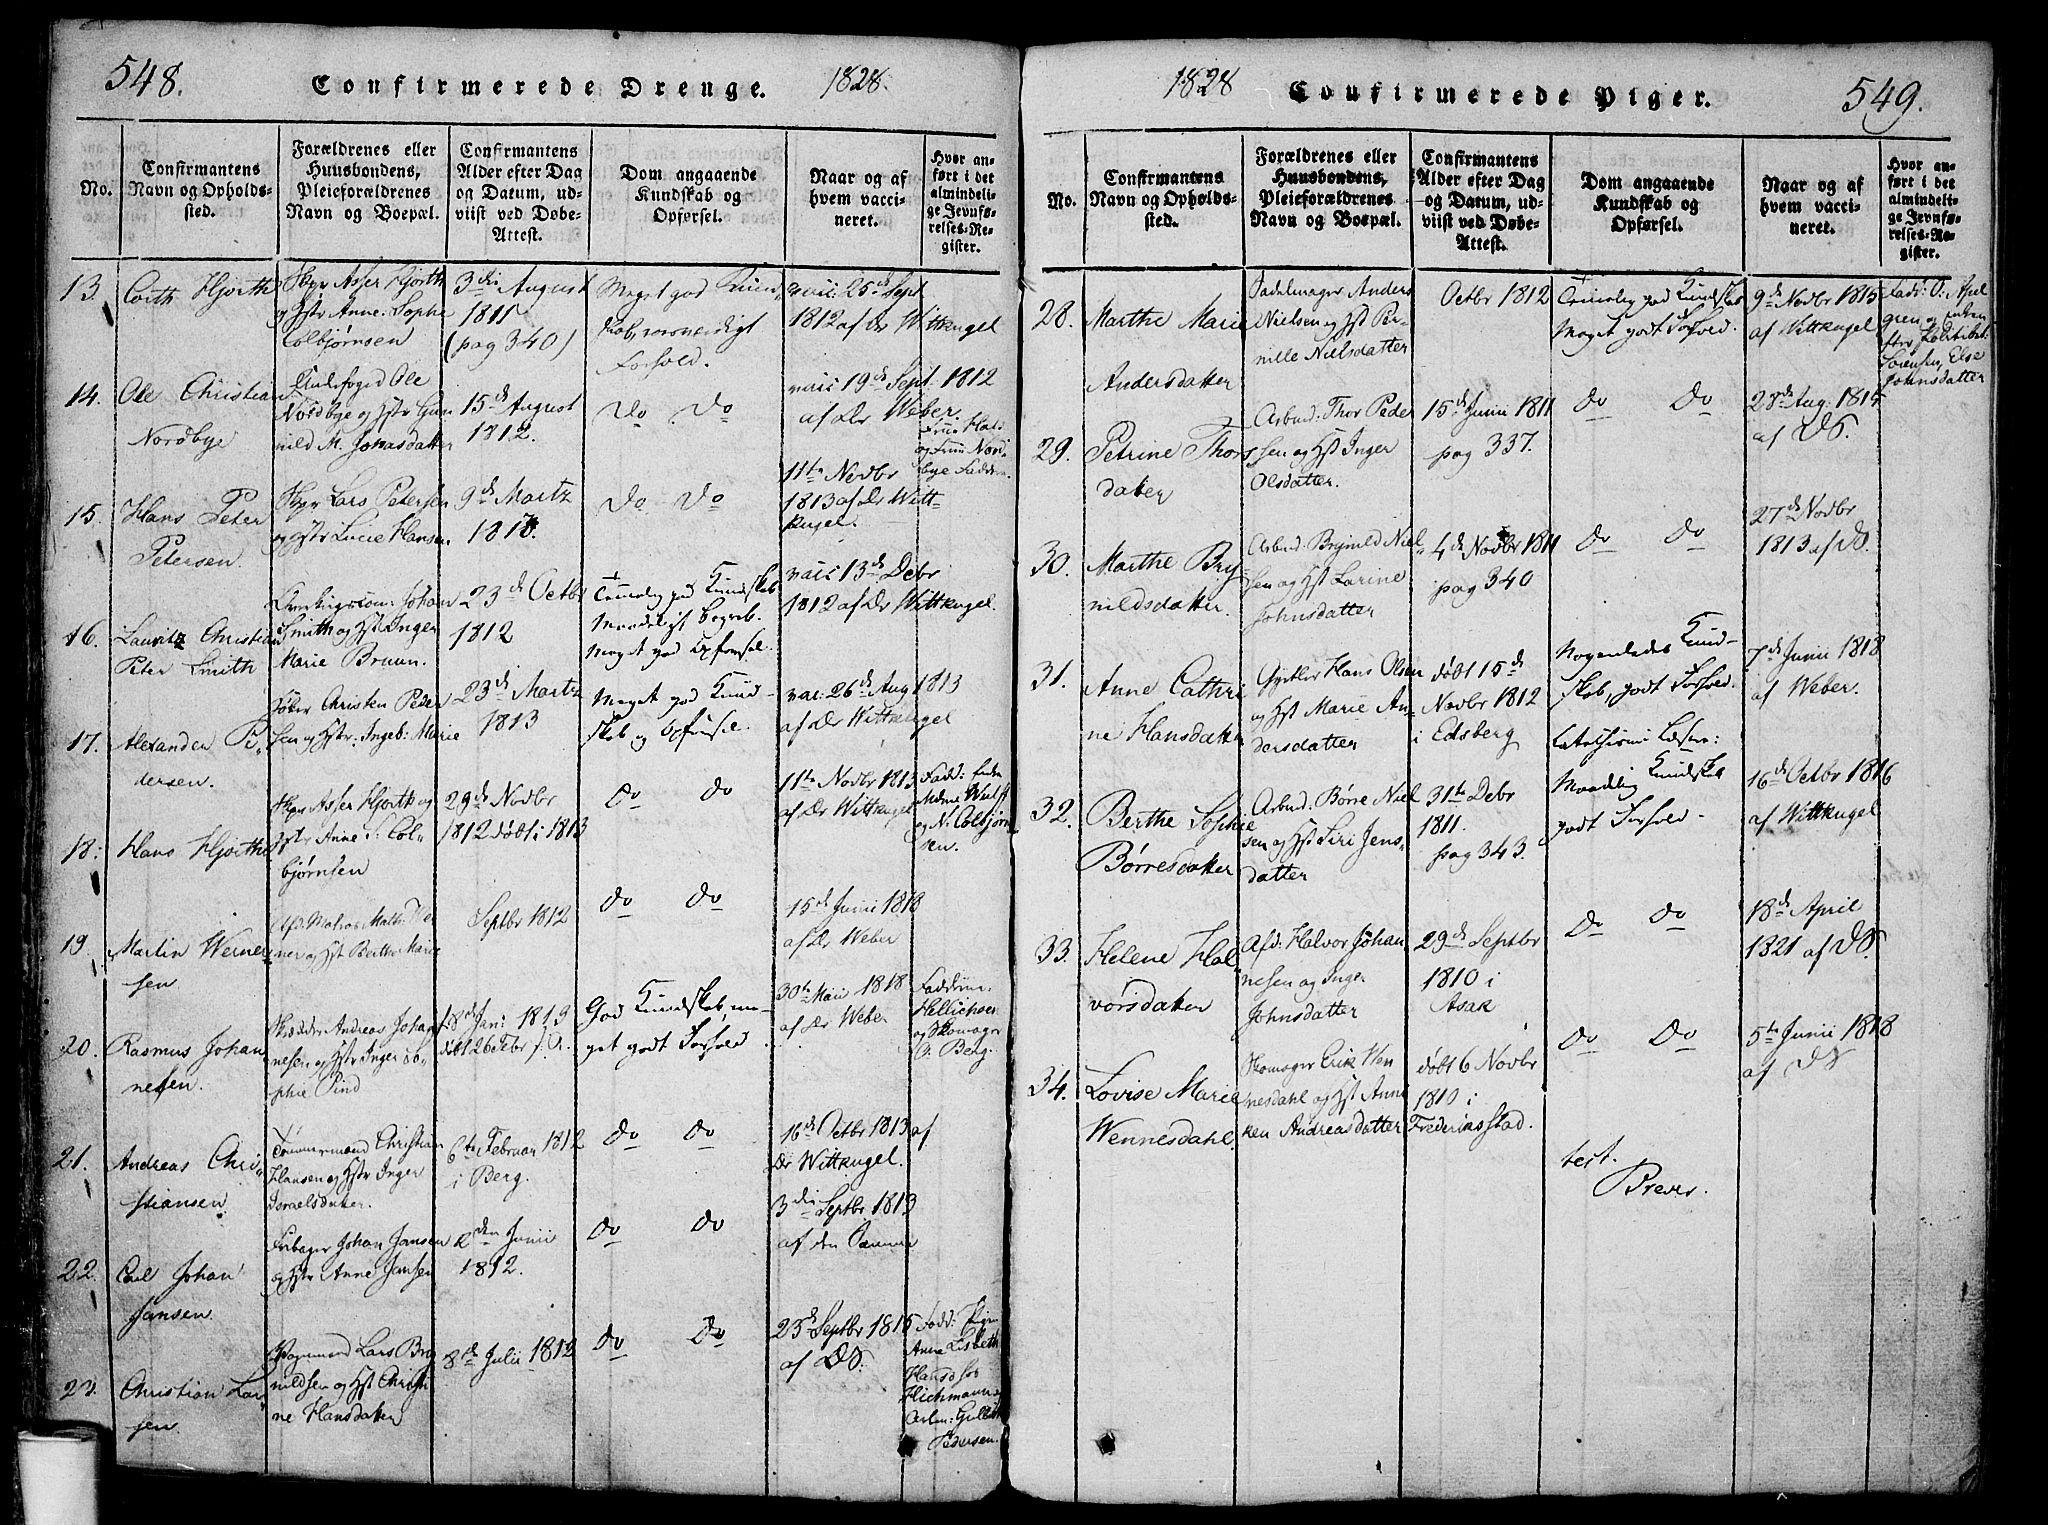 548.
Confirmerede Drenge.
1828.
No.
Confirmantens
Navn og Opholds-
sted.
Forældrenes eller
Huusbondens,
Pleieforældrenes
Navn og Boepæl.
Confirmantens
Alder efter Dag
og Datum, ud-
viist ved Døbe-
Attest.
Dom angaaende
Kundskab og
Opførsel.
Naar og af
hvem vacci-
neret.
Hvor an-
ført i det
almindeli-
ge Jevnfø-
relses-Re-
gister.
13.
Corth Hjorth
Skpr Asser Hjorth
og Hstr Anne Sophe
Colbjørnsen
3die August
1811
(pag 340)
Meget god Kund-
skab, roesværdigt
Forhold.
vacc: 25de Sept
1812 af Dr Wittkugel
14.
Ole Christian
Nordbye
Underfoged Ole
Nordbye og Hstr Gun
nild M. Jonasdatter
15de August
1812.
Do Do
vacc 19de Sept: 1812
af Dr Weber.
15.
Hans Peter
Petersen.
Skpr Lars Petersen
og Hstr Lucie Hansen
9de Martz
Do Do
11te Novbr
1813 af Dr Witt-
kugel.
16.
Lauritz Christian
Peter Smith
Johan
Smith og Hst Inger
Marie Bruun.
23de Octbr
1812
Temelig god Kundskab
Maadeligt Begreb.
Meget god Opførsel.
vacc 13de Debr
1812 af Dr Wittkugel.
17.
Alexander Pe-
dersen.
Christen Peder
sen og Hstr: Ingeb: Marie
23de Martz
1813
Meget god Kund-
skab og Opførsel.
vac: 26de Aug 1813
af Dr Wittkugel
18.
Hans Hjorth
Skpr Asser Hjorth og
Hstr Anne S: Col-
bjørnsen
29de Novbr
1812 døbt i 1813
Do Do
11te Novbr 1813
af Dr Wittkugel
og N: Colbjørn
sen.
19.
Martin Werner
sen
Afd. Matros Math: We
ner og Hst Berthe Marie
Septbr 1812
Do Do
15de Junii 1818
af Dr Weber
20.
Rasmus Johan
nesen.
Skrædder Andreas Johan
nesen og Hstr Inger So-
phie Pind
8de Jan: 1813
døbt 26 Febr s. A.
God Kundskab, me-
get godt Forhold.
30te Maii 1818
af Dr Weber
Fadderne
Hellichsen
og Skomager
O. Berg.
21.
Andreas Chri-
stiansen.
Tømmermand Christian
Hansen og Hstr Inger
Israelsdatter.
6te Februar 1812
i Berg.
Do Do
16de Octbr 1813 af
Dr Wittkugel.
22.
Carl Johan
Jansen.
Johan Jansen
og Hstr Anne Jansen
2den Junii
1812.
Do Do
3die Septbr 1813
af den Samme
23.
Christian Lar-
sen
Vognmand Lars Bry
nildsen og Hst Christi
ne Hansdatter
8de Julii 1812
Do Do
23de Septbr 1815
af DS.
Fadd: Pigen
Anne Lisbeth
Pedersen.
1828
Confirmerede Piger.
549.
No.
Confirmantens
Navn og Opholds-
sted.
Forældrenes eller
Huusbondens,
Pleieforældrenes
Navn og Boepæl.
Confirmantens
Alder efter Dag
og Datum, ud-
viist ved Døbe-
Attest.
Dom angaaende
Kundskab og
Opførsel.
Naar og af
hvem vacci-
neret.
Hvor an-
ført i det
almindeli-
ge Jevnfø-
relses-Re-
gister.
28.
Marthe Marie
Andersdatter
Sadelmager Anders
Nielsen og Hst Per-
nille Nielsdatter
Octbr 1812
Temelig god Kundskab
Meget godt Forhold.
9de Novbr 1815
af Wittkugel
Sørensen, Else
Johnsdatter
29.
Petrine Thors
datter
Arbmd: Thor Peder
sen og Hst Inger
Olsdatter.
15de Junii 1811
pag 337.
Do Do
28de Aug: 1815
af DS.
30.
Marthe Bry-
nildsdatter.
Arbmd: Brynild Niel
sen og Hst Larine
Johnsdatter
4de Novbr 1811
pag 340
Do Do
27de Novbr
1813 af DS.
31.
Anne Cathri
ne Hansdatter
Gjørtler Hans Olsen
og Hst Marie An-
dersdatter
døbt 15de
Novbr 1812
i Edsberg
Nogenledes Kund-
skab, godt Forhold.
7de Junii 1818
af Weber.
32.
Berthe Sophie
Børresdatter
Arbmd: Børre Niel
sen og Hst Siri Jens-
datter
31te Debr
1811.
pag 343.
Maadelig Kundskab
godt Forhold.
16de Octbr 1816
af Wittkugel
33.
Helene Hal
vorsdatter
Afd: Halvor Johan
nesen og Inger
Johnsdatter
29de Septbr
1810 i
Asak
Do Do
18de April
1821 af DS.
34.
Lovise Marie
Wennesdahl.
Skomager Erik Wen
nesdahl og Hst Anni
ken Andreasdatter
døbt 6 Novbr
1810 i
Frederiksstad.
Do Do
5te Junii 1818
af DS
test.
Brever.